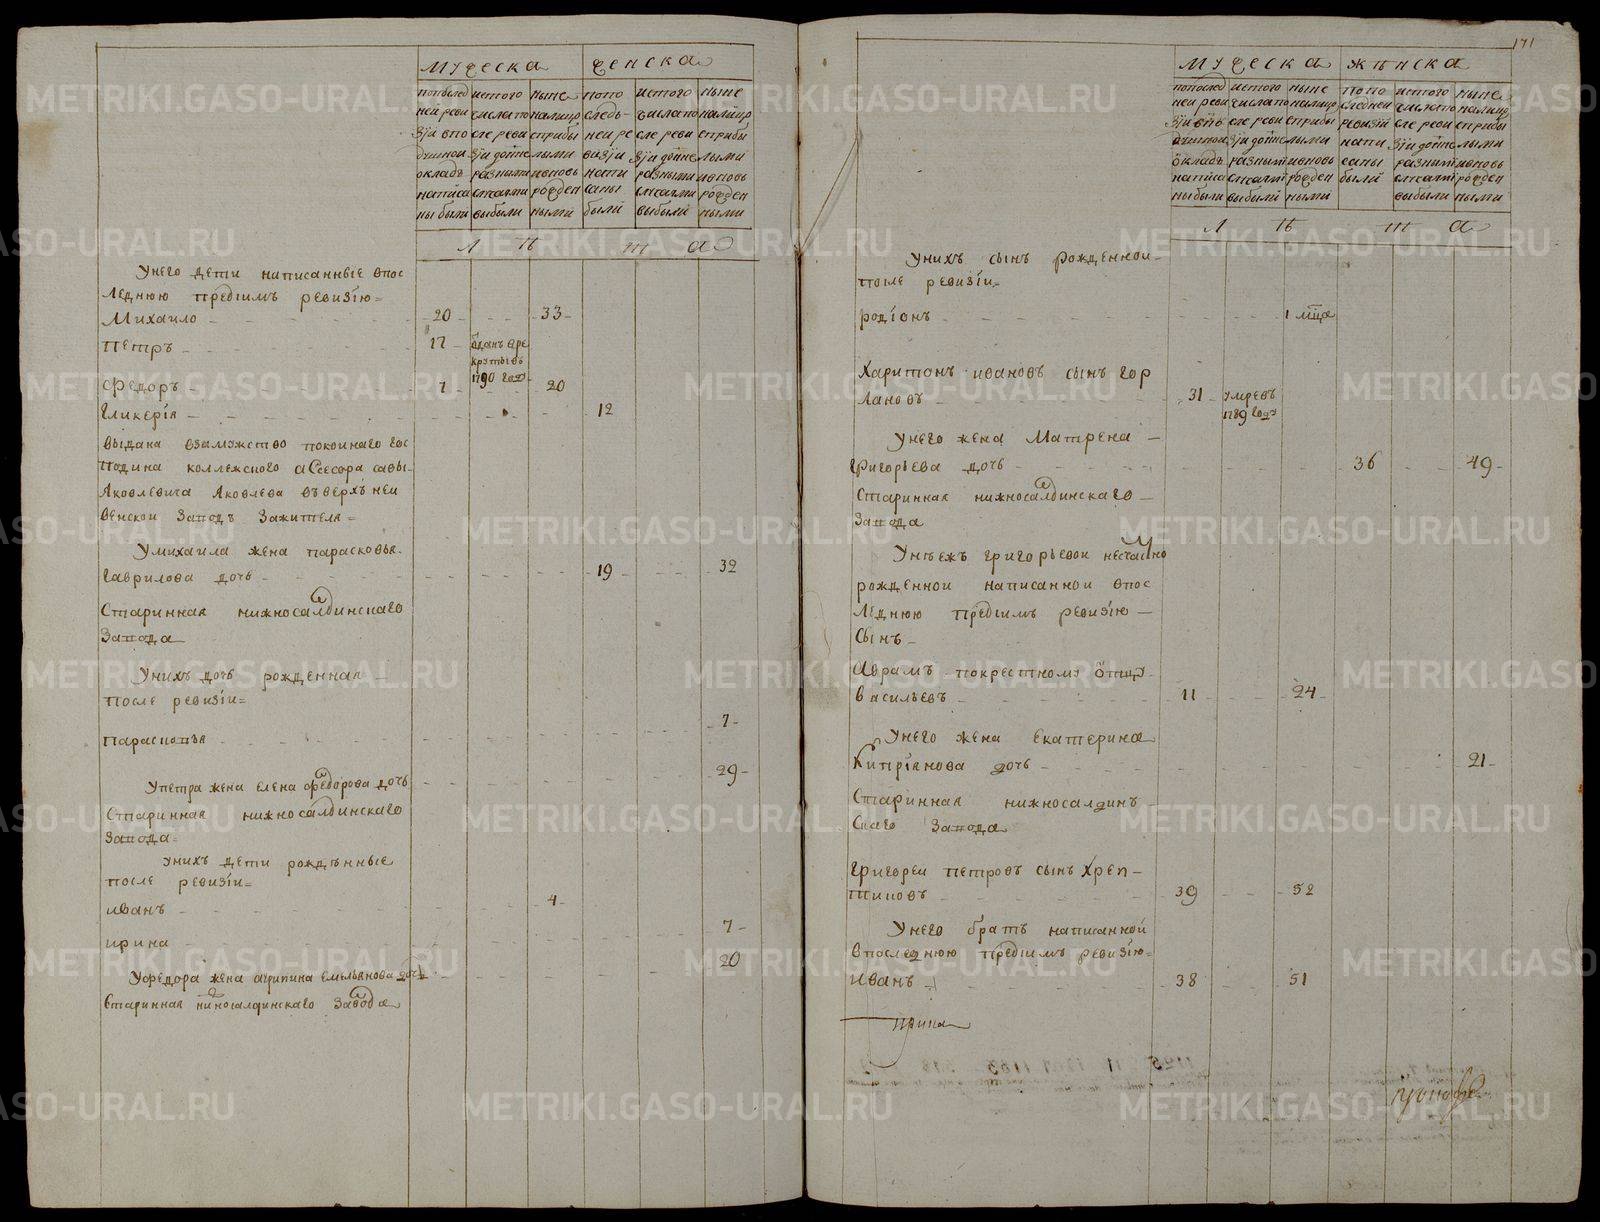 мужеска женска
попослед ней реви зїи впо душной окладъ написа ны были
изтого числапо сле реви зїи дойне разными слчаями выбыли
ныне налицо сприбы лыми ивновь рожден ными
попо следь- ней ре визїи напи саны были
изтого числапо сле реви зїи дойне разными слчаями выбыли
ныне налицо сприбы лыми ивновь рожден ными
л ѣ т а
Унего дети написанные впос
леднюю предъимъ ревизїю=
Михаило 20 33
Петръ 17 отданъ вре круты въ 1790 году
Федоръ 7 20
Гликерїя 12
выдана взамужство покоинаго гос
подина коллежского ассесора савы
Яковлевича Яковлева въверхънеи
венскои заводъ зажителя=
Умихаила жена парасковья
гаврилова дочь 19 32
Старинная нижносалдинскаго
завода
Унихъ дочь рожденная
после ревизїи=
парасковья 7
Упетра жена елена федорова дочь 29
Старинная нижносалдинскаго
завода=
Унихъ дети рожденные
после ревизїи=
иванъ 4
ирина 7
Уфедора жена агрипина емельянова дочь 20
Старинная нижносалдинскаго завода
171
мужеска женска
попослед ней реви зїи впо душной окладъ написа ны были
изтого числапо сле реви зїи дойне разными слчаями выбыли
ныне налицо сприбы лыми ивновь рожден ными
попо следней ревизїи напи саны были
изтого числапо сле реви зїи дойне разными слчаями выбыли
ныне налицо сприбы лыми ивновь рожден ными
л ѣ т а
Унихъ сынъ рожденнои
после ревизїи=
родїонъ 1 мца
Харитонъ ивановъ сынъ гор
лановъ 31 умревъ 1789 году
Унего жена Матрена
григорьева дочь 36 49
Старинная нижносалдинскаго
завода
Унееже григорьевои несчасно
рожденнои написаннои впос
леднюю предъимъ ревизїю
сынъ
Аврамъ покрестному отцу
васильевъ 11 24
Унего жена Екатерина
Кипрїянова дочь 21
Старинная нижносалдинъ
скаго завода
Григореи петровъ сынъ Хреп
тиковъ 39 52
Унего братъ написанной
впоследнюю предъимъ ревизїю=
Иванъ 38 51
METRIKI.GASO-URAL.RU